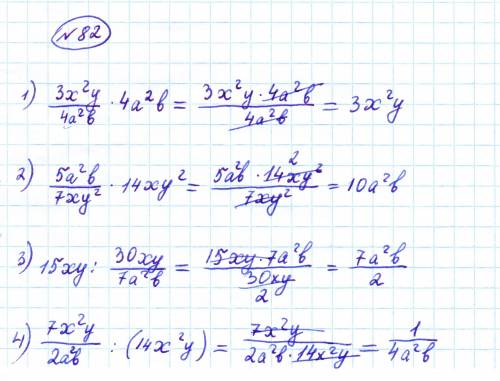 №82
1) 3x²y/4a²b · 4a²b = 3x²y · 4a²b/4a²b = 3x²y
2) 5a²b/7xy² · 14xy² = 5a²b · 14xy² 2/7xy² = 10a²b
3) 15xy : 30xy/7a²b = 15xy · 7a²b/30xy 2 = 7a²b/2
4) 7x²y/2a²b : (14x²y) = 7x²y/2a²b · 14x²y = 1/4a²b